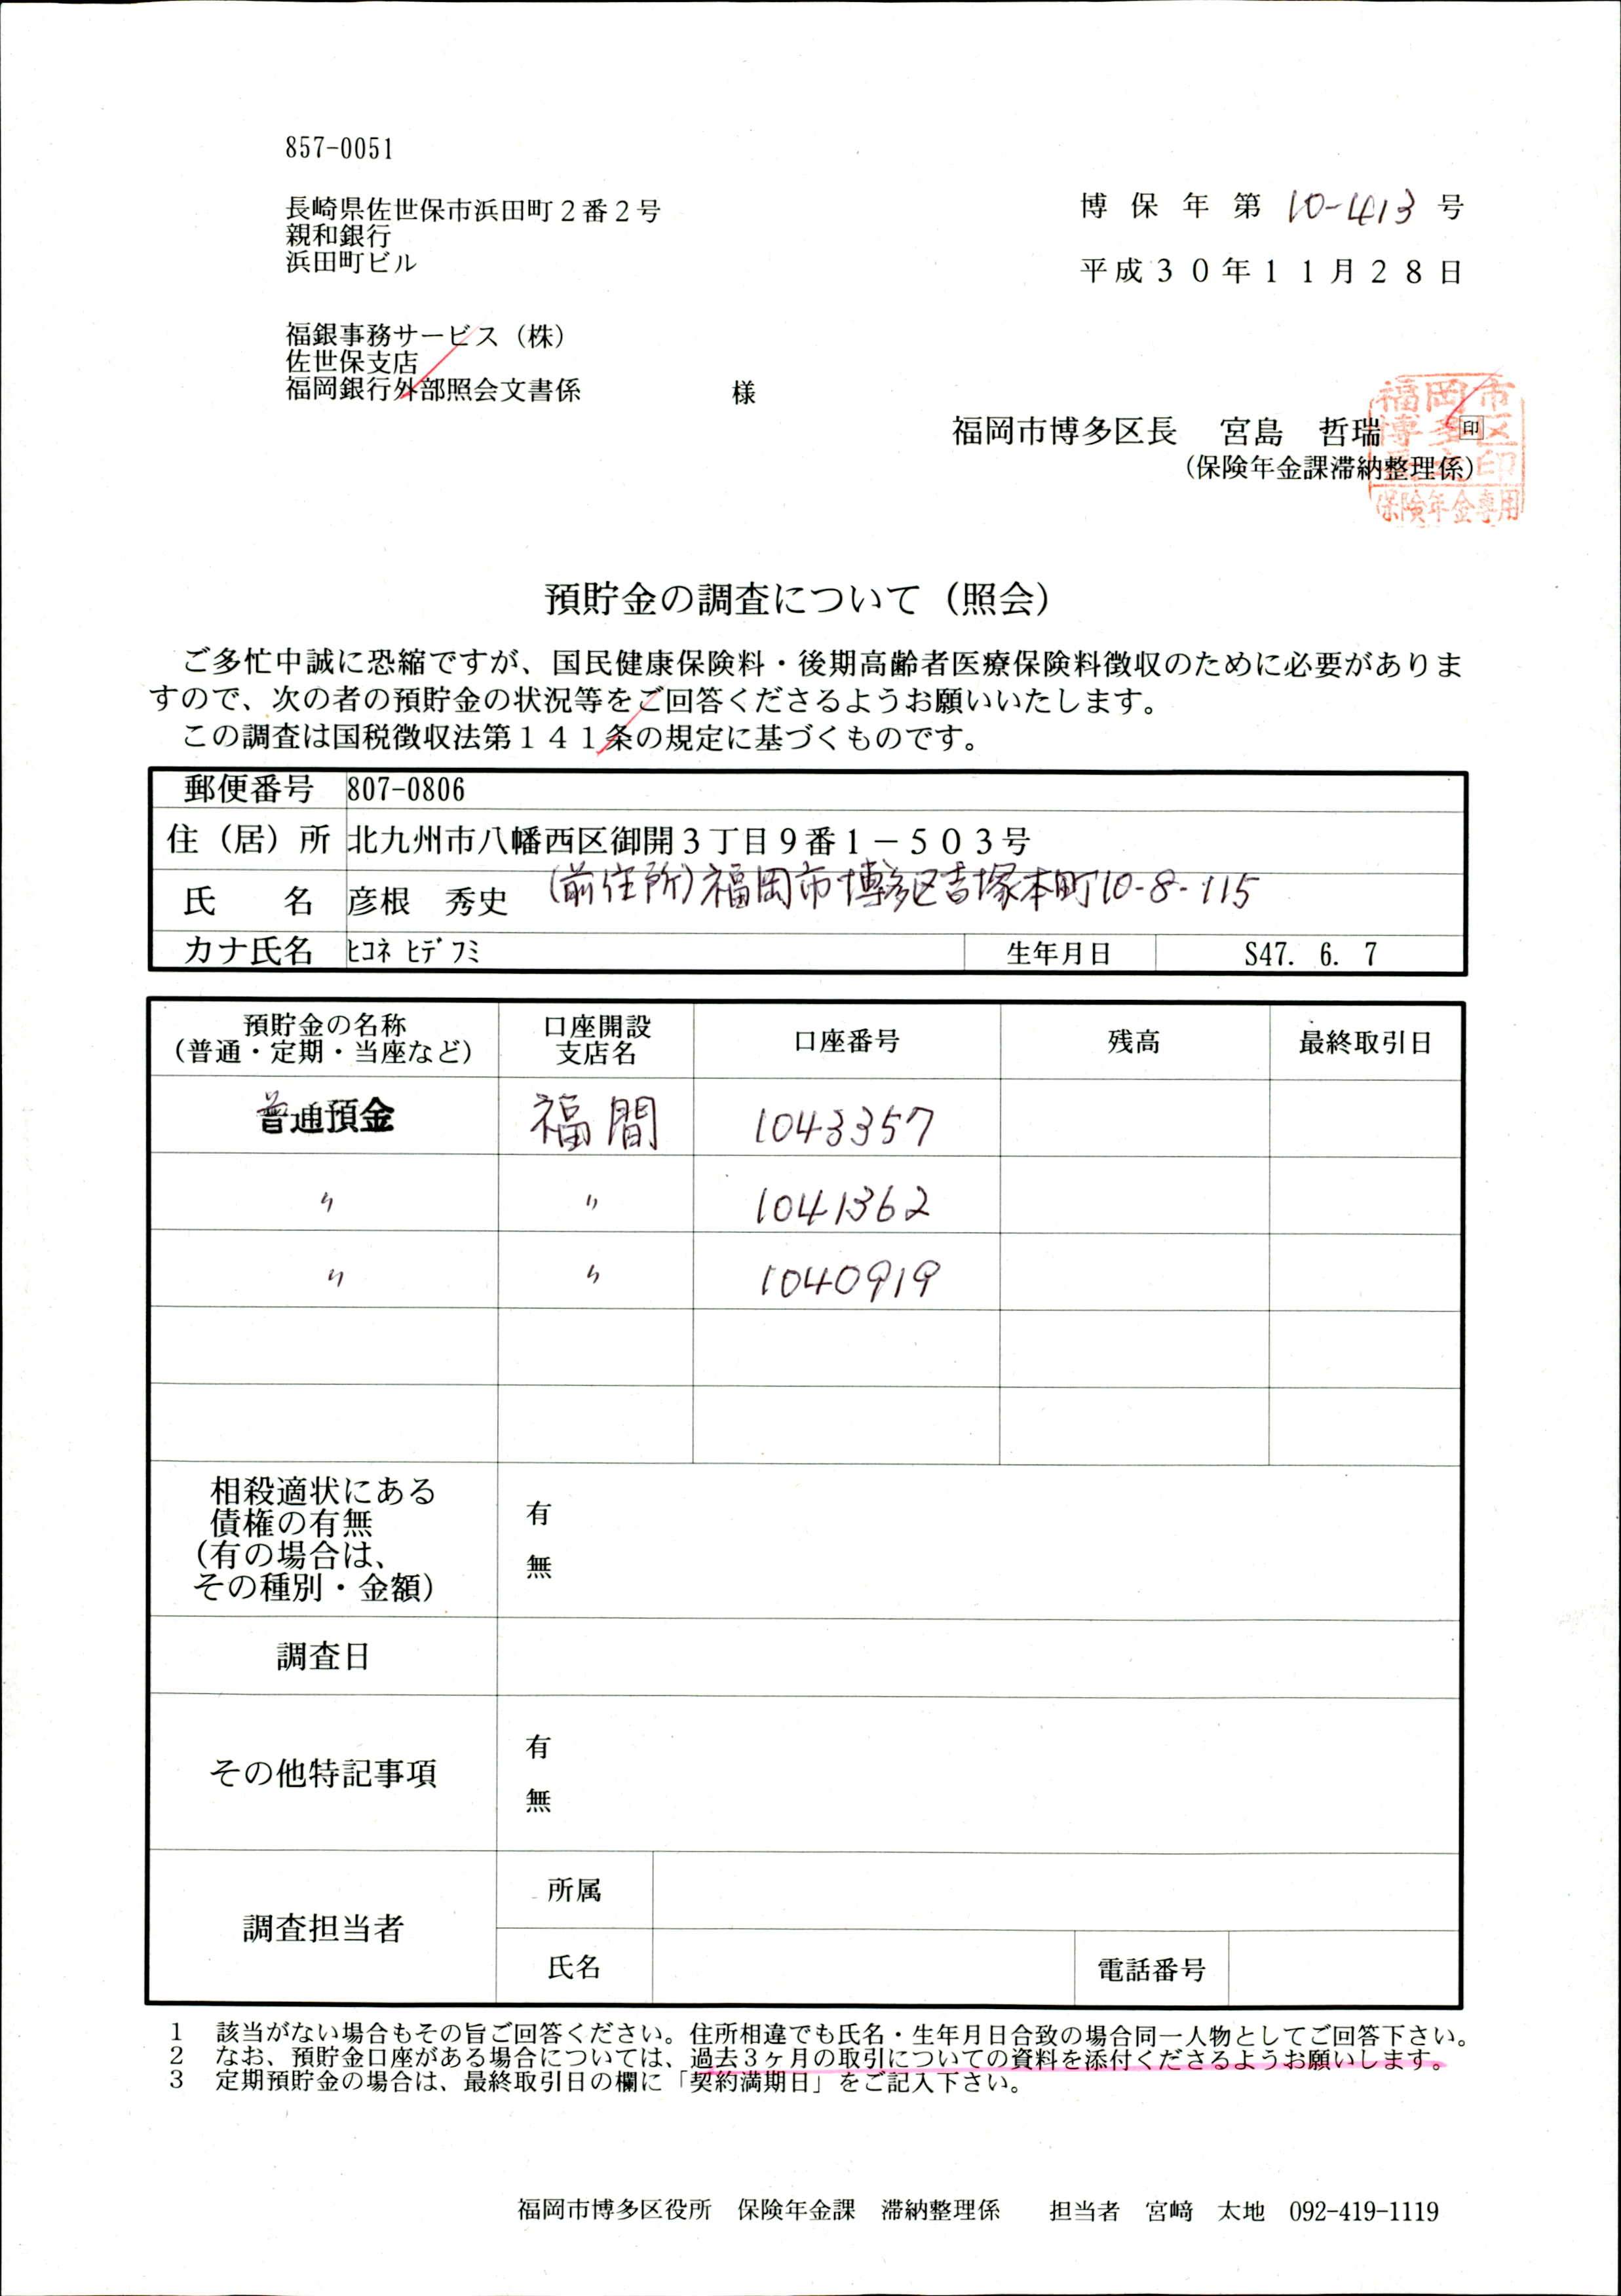 857-0051
長崎県佐世保市浜田町2番2号
親和銀行
浜田町ビル
博保年第 10-413 号
平成30年11月28日
福銀事務サービス（株）
佐世保支店
福岡銀行外部照会文書係 様
福岡市博多区長 宮島 哲瑞 印
（保険年金課滞納整理係）
福岡市
博多区
保険年金専用
預貯金の調査について（照会）
ご多忙中誠に恐縮ですが、国民健康保険料・後期高齢者医療保険料徴収のために必要がありま
すので、次の者の預貯金の状況等をご回答くださるようお願いいたします。
この調査は国税徴収法第141条の規定に基づくものです。
郵便番号 807-0806
住（居）所 北九州市八幡西区御開3丁目9番1－503号
(前住所)福岡市博多区吉塚本町10-8-115
氏 名 彦根 秀史
カナ氏名 ﾋｺﾈ ﾋﾃﾞﾌﾐ 生年月日 S47. 6. 7
預貯金の名称
（普通・定期・当座など） 口座開設
支店名 口座番号 残高 最終取引日
普通預金 福間 1043357
〃 〃 1041362
〃 〃 1040919
相殺適状にある
債権の有無
（有の場合は、
その種別・金額）
有
無
調査日
その他特記事項
有
無
調査担当者
所属
氏名 電話番号
1 該当がない場合もその旨ご回答ください。住所相違でも氏名・生年月日合致の場合同一人物としてご回答下さい。
2 なお、預貯金口座がある場合については、過去3ヶ月の取引についての資料を添付くださるようお願いします。
3 定期預貯金の場合は、最終取引日の欄に「契約満期日」をご記入下さい。
福岡市博多区役所 保険年金課 滞納整理係 担当者 宮﨑 太地 092-419-1119